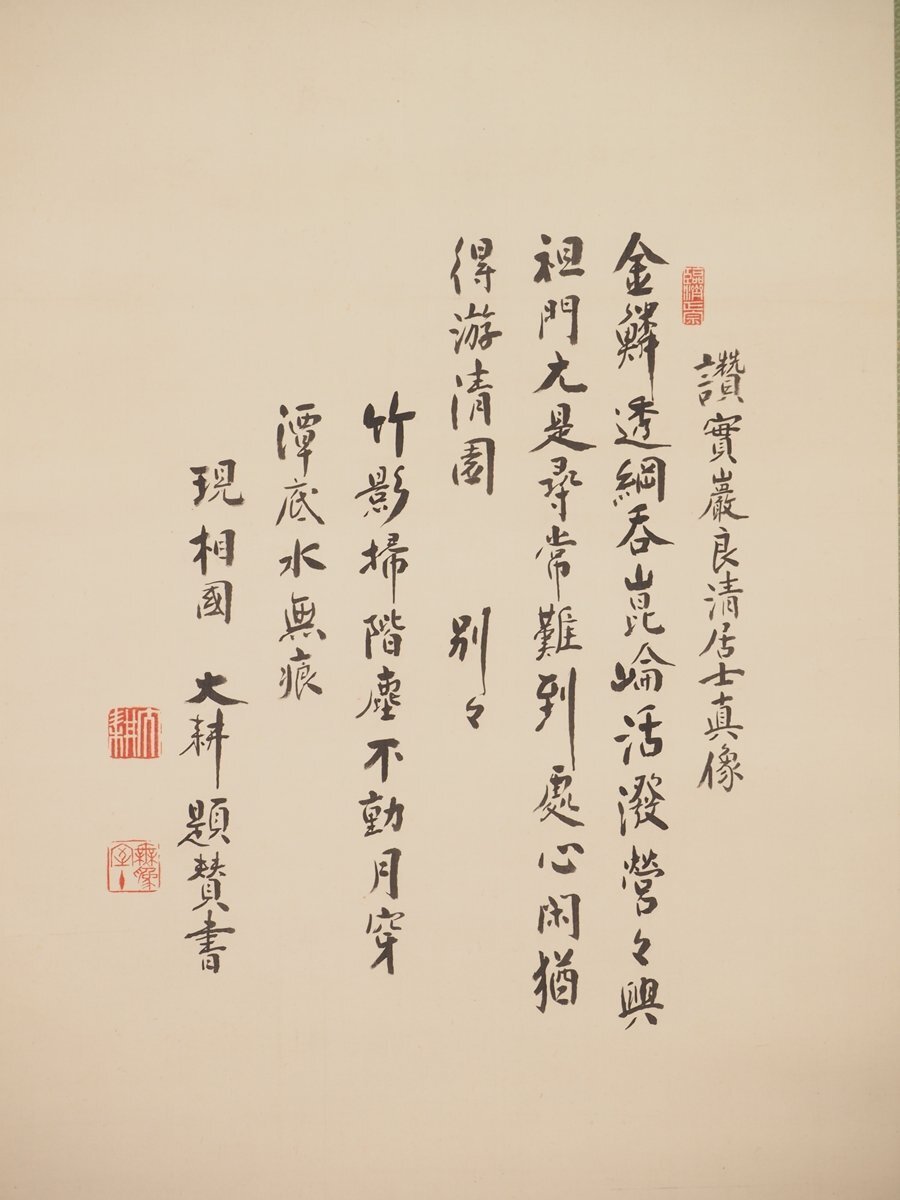 讚實巖良清居士真像
金鱗透網吞崑崘活潑營々興
祖門尤是尋常難到處心閑猶
得游清園 別々
竹影掃階塵不動月穿
潭底水無痕
現相國 大耕題賛書
臨濟正宗
大耕